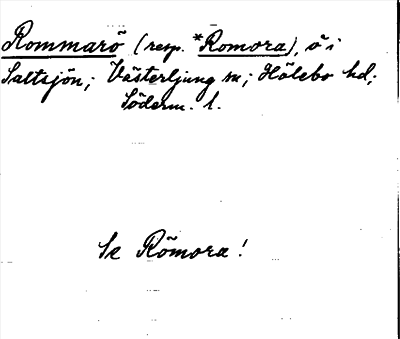 Rommarö (resp. *Romora), ö i
Saltsjön; Västerljung sn; Hölebo hd;
Söderm. l.
Se Römora!